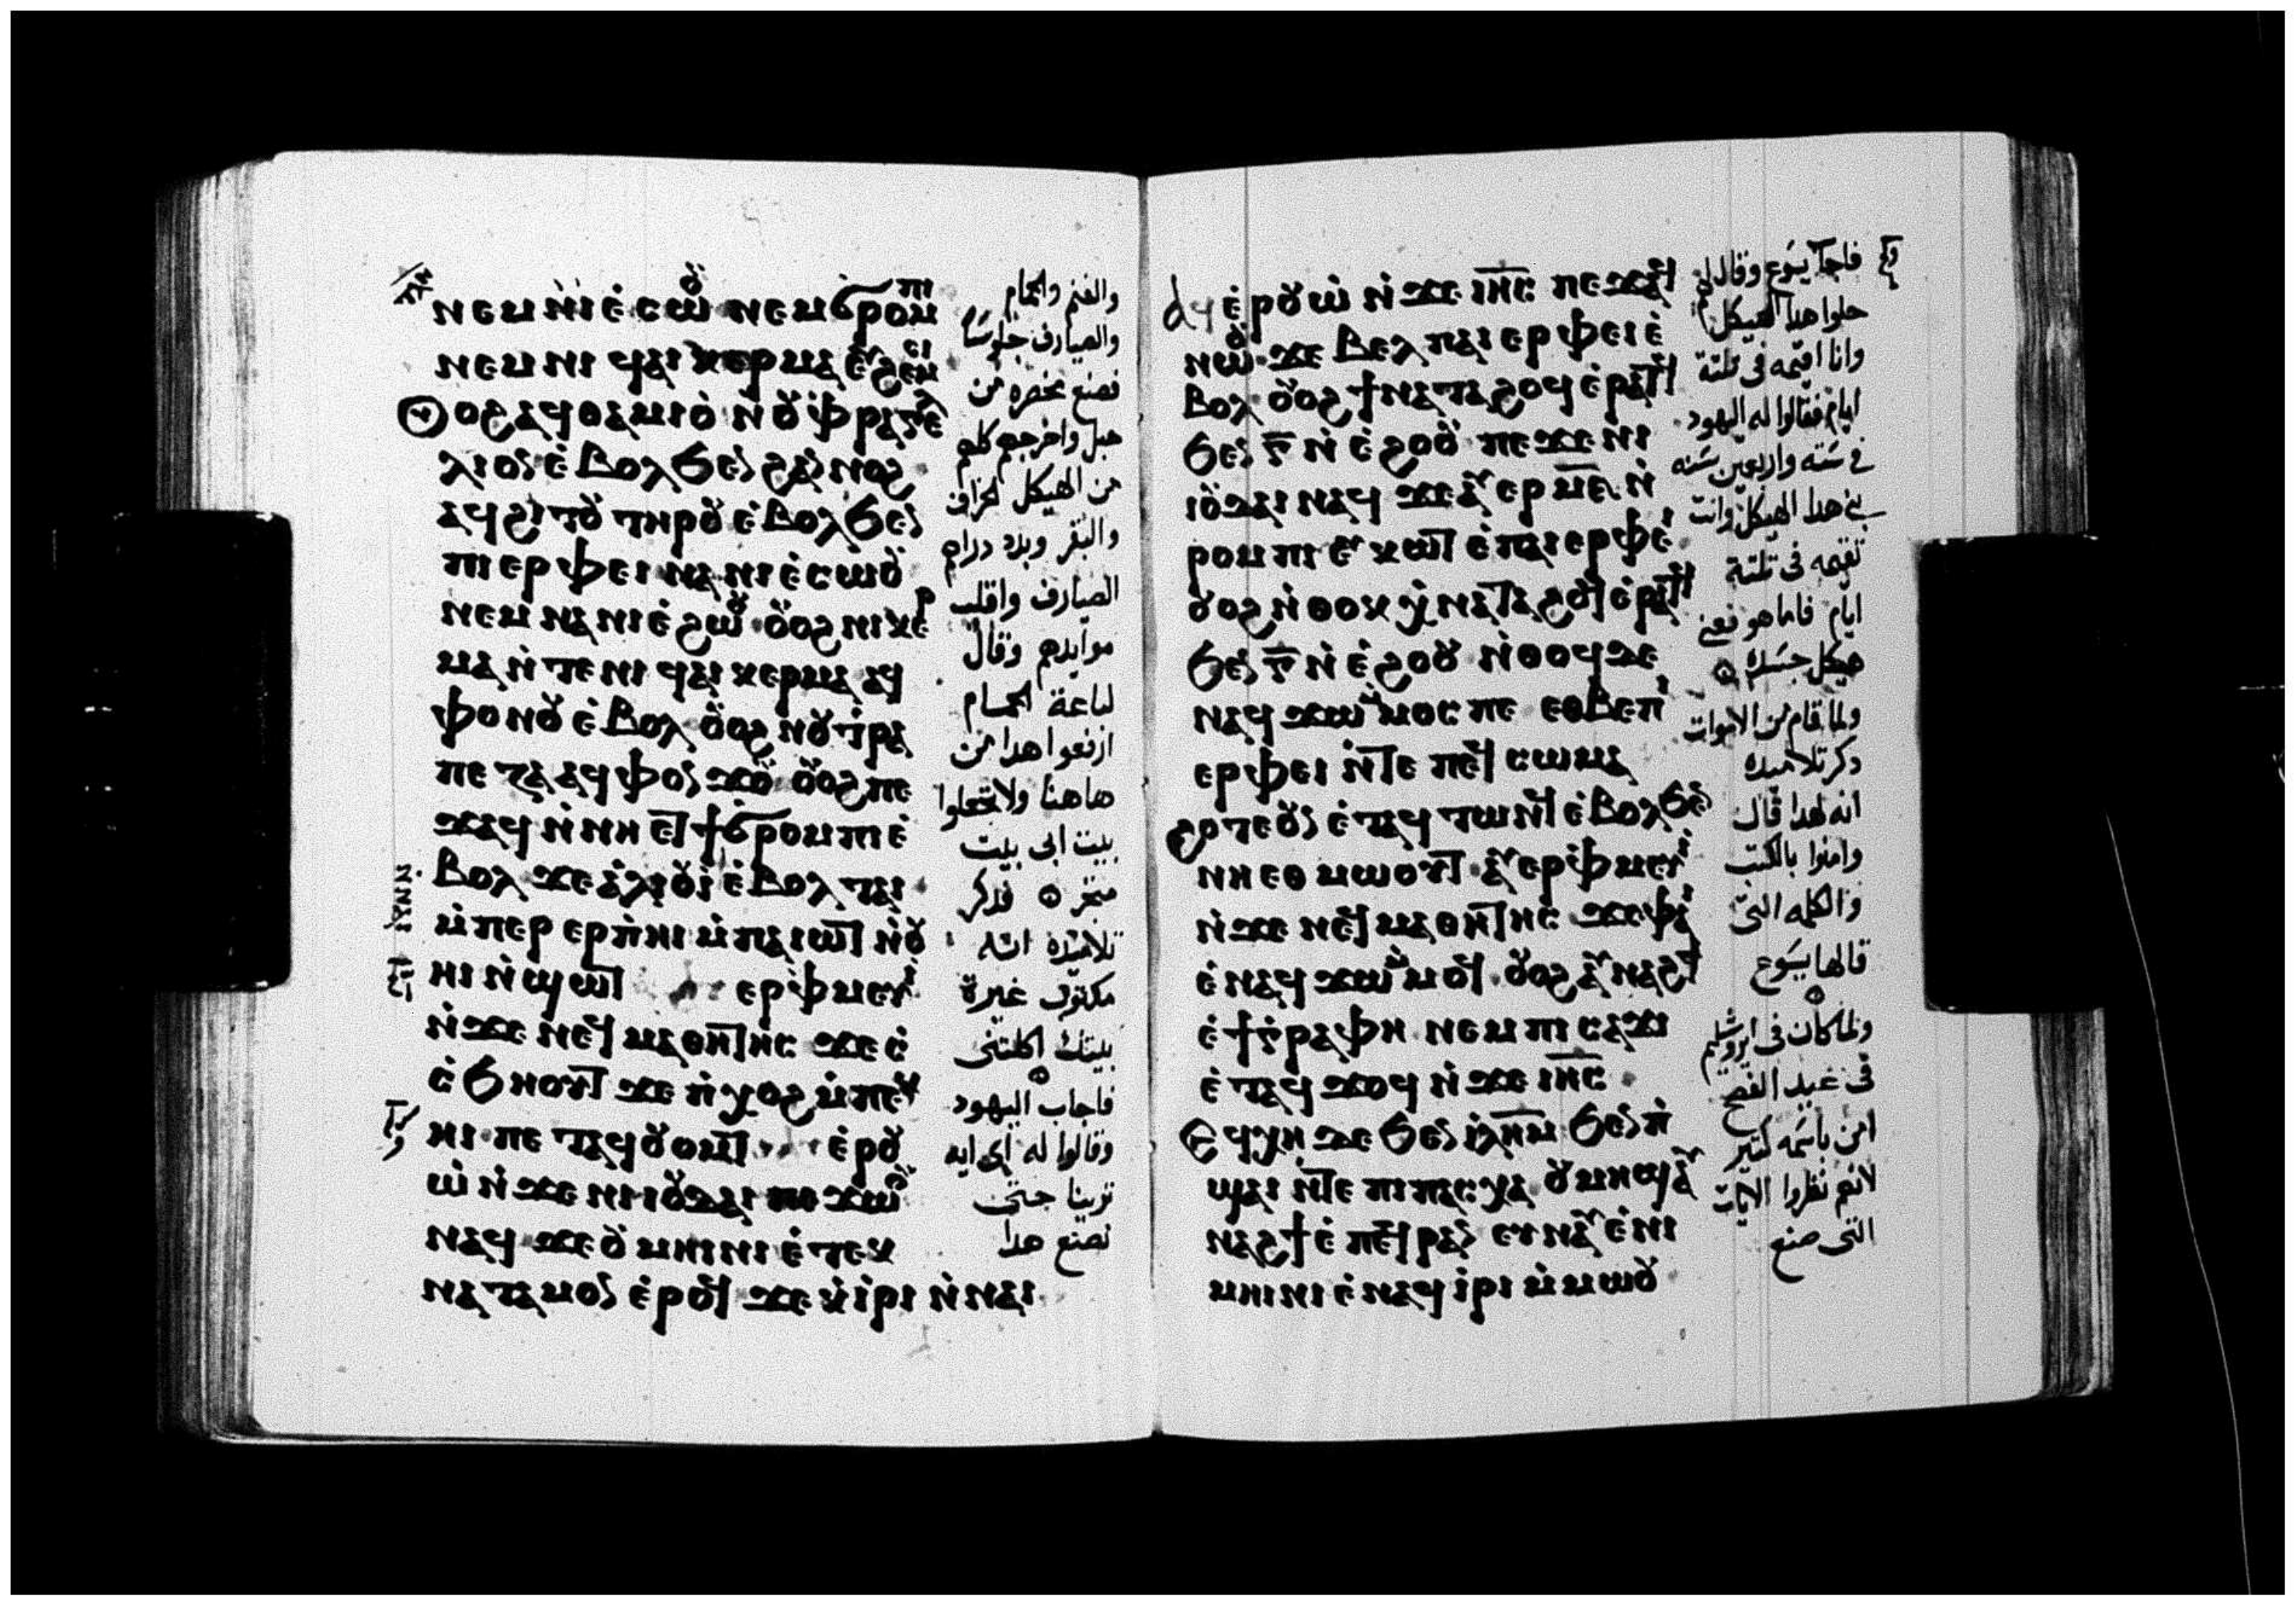 ⲛⲉⲙ ⲛⲓⲉ̀ⲥⲱⲟⲩ ⲛⲉⲙ ϭⲣⲟⲙⲡⲓ
ⲛⲉⲙ ⲛⲓ ϥⲁⲓ ⲕⲉⲣⲙⲁ ⲉⲩϩⲉⲙⲥⲓ
ⲟϩ ⲁϥⲑⲁⲙⲓⲟ̀ ⲛ̀ⲟⲩⲫ̀ⲣⲁⲅⲉⲗ
ⲗⲓⲟⲛ ⲉ̀ⲃⲟⲗϧⲉⲛ ϩⲁⲛⲛⲟϩ
ⲁϥϩⲓⲧⲟⲩ ⲧⲏⲣⲟⲩ ⲉ̀ⲃⲟⲗϧⲉⲛ
ⲡⲓⲉⲣⲫⲉⲓ ⲛⲁ ⲛⲓⲉ̀ⲥⲱⲟⲩ
ⲛⲉⲙ ⲛⲁ ⲛⲓⲉ̀ϩⲱⲟⲩ ⲟⲩⲟϩ ⲛⲓⲕⲉⲣ
ⲙⲁ ⲛ̀ⲧⲉ ⲛⲓ ϥⲁⲓ ⲕⲉⲣⲙⲁ ⲁϥ
ⲫⲟⲛⲟⲩ ⲉ̀ⲃⲟⲗ ⲟⲩⲟϩ ⲛⲟⲩⲧ̀ⲣⲁ
ⲡⲉⲍⲁ ⲁϥⲫⲟⲛϫⲟⲩ ⲟⲩⲟϩ ⲡⲉ
ϫⲁϥ ⲛ̀ⲛⲏ ⲉⲧϯ ϭⲣⲟⲙⲡⲓ ⲉ̀
ⲃⲟⲗ ϫⲉ ⲁ̀ⲗⲓⲟⲩⲓ̀ ⲉ̀ⲃⲟⲗ ⲧⲁⲓ
ⲙ̀ⲡⲉⲣ ⲉⲣⲡ̀ⲏⲓ ⲙ̀ⲡⲁⲓⲱⲧ ⲛ̀ⲟⲩ
ⲏⲓ ⲛ̀ϣⲱⲧ ⲉⲣⲫ̀ⲙⲉⲩⲓ̀
ⲛ̀ϫⲉ ⲛⲉϥⲙⲁⲑⲏⲧⲏⲥ ϫⲉ ⲥ̀
ⲥ̀ϧⲏⲟⲩⲧ ϫⲉ ⲡ̀ⲭⲟϩ ⲙ̀ⲡⲉⲕ
ⲏⲓ ⲡⲉⲧⲁϥⲟⲩⲟⲙⲧ ⲉ̀ⲣⲟⲩ
ⲱ̀ ⲛ̀ϫⲉ ⲛⲓⲓⲟⲩⲇⲁⲓ ⲡⲉϫⲱⲟⲩ
ⲛⲁϥ ϫⲉ ⲟⲩ ⲙⲏⲓⲛⲓ ⲉ̀ⲧⲉⲕ
ⲛⲁⲧⲁⲙⲟⲛ ⲉ̀ⲣⲟϥ ϫⲉ ⲕ̀ⲓ̀ⲣⲓ ⲛ̀ⲛⲁⲓ
والغنم والحمام
والصيارف جلوسا
فصنع مخصره من
حبل واخرجهم كلهم
من الهيكل الخراف
والبقر وبدد دراهم
الصيارف واقلب
موايدهم وقال
لباعة الحمام
ارفعوا هدا من
هاهنا ولا تجعلوا
بيت ابى بيت
متجر فدكر
تلاميده انه
مكتوب غيرة
بيتك اكلتنى
فاجاب اليهود
وقالوا له اى ايه
ترينا حتى
تصنع هدا
ⲁϥⲉ̀ⲣⲟⲩⲱ̀ ⲛ̀ϫⲉ ⲓⲏⲥ ⲡⲉϫⲁϥ
ⲛⲱⲟⲩ ϫⲉ ⲃⲉⲗ ⲡⲁⲓⲉⲣⲫⲉⲓ ⲉ̀
ⲃⲟⲗ ⲟⲩⲟϩ ϯⲛⲁⲧⲁϩⲟϥ ⲉ̀ⲣⲁⲧϥ
ϧⲉⲛ ⲅ̄ ⲛ̀ⲉ̀ϩⲟⲟⲩ ⲡⲉϫⲉ ⲛⲓ
ⲓⲟⲩⲇⲁⲓ ⲛⲁϥ ϫⲉ ⲁⲩⲉⲣ ⲙ̄ⲋ̄ ⲛ̀
ⲣⲟⲙⲡⲓ ⲉⲩⲕⲱⲧ ⲉ̀ⲡⲁⲓⲉⲣⲫⲉⲓ
ⲟⲩⲟϩ ⲛ̀ⲑⲟⲕ ⲭ̀ⲛⲁⲧⲁϩⲟϥ ⲉ̀ⲣⲁⲧϥ
ϧⲉⲛ ⲅ̄ ⲛ̀ⲉ̀ϩⲟⲟⲩ ⲛ̀ⲑⲟϥ ⲇⲉ
ⲛⲁϥϫⲱ ⲙ̀ⲙⲟⲥ ⲡⲉ ⲉⲑⲃⲉ ⲡⲓ
ⲉⲣⲫⲉⲓ ⲛ̀ⲧⲉ ⲡⲉϥⲥⲱⲙⲁ
ϩⲟⲧⲉ ⲟⲩⲛ ⲉ̀ⲧⲁϥⲧⲱⲛϥ ⲉ̀ⲃⲟⲗϧⲉⲛ
ⲛⲏⲉⲑⲙⲱⲟⲩⲧ ⲁⲩⲉⲣⲫ̀ⲙⲉⲩⲓ̀
ⲛ̀ϫⲉ ⲛⲉϥⲙⲁⲑⲏⲧⲏⲥ ϫⲉ ⲫⲁⲓ
ⲉ̀ⲛⲁϥϫⲱ ⲙ̀ⲙⲟϥ ⲟⲩⲟϩ ⲁⲩⲛⲁϩϯ
ⲉ̀ϯⲅ̀ⲣⲁⲫⲏ ⲛⲉⲙ ⲡⲓⲥⲁϫⲓ
ⲉ̀ⲧⲁϥϫⲟϥ ⲛ̀ϫⲉ ⲓⲏⲥ
ⲉϥⲭⲏ ⲇⲉ ϧⲉⲛ ⲓ̀ⲗⲏⲙ ϧⲉⲛ ⲡ̀
ϣⲁⲓ ⲛ̀ⲧⲉ ⲡⲓⲡⲁⲥⲭⲁ ⲟⲩⲙⲏϣ ⲁⲩ
ⲛⲁϩϯ ⲉ̀ⲡⲉϥⲣⲁⲛ ⲉⲩⲛⲁⲩ ⲉ̀ⲛⲓ
ⲙⲏⲓⲛⲓ ⲉ̀ⲛⲁϥⲓ̀ⲣⲓ ⲙ̀ⲙⲱⲟⲩ
فاجاب يسوع وقال لهم
حلوا هدا الهيكل
وانا اقيمه فى تلتة
ايام فقالوا له اليهود
فى ستة واربعين سنه
بنى هدا الهيكل وانت
تقيمه فى تلتة
ايام فاما هو فعنى
هيكل جسده
ولما قام من الاموات
دكر تلاميده
انه لهدا قال
وامنوا بالكتب
والكلمه التى
قالها يسوع
ولما كان فى ايروشليم
فى عيد الفصح
امن باسمه كتير
لانهم نظروا الايات
التى صنع